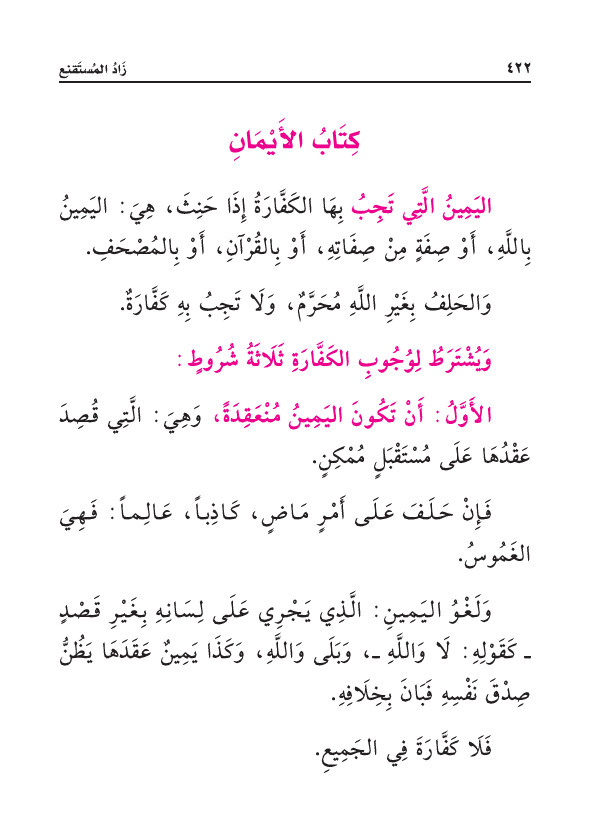 ٤٢٢ زَادُ المُستَقنِع
كِتَابُ الأَيْمَانِ
اليَمِينُ الَّتِي تَجِبُ بِهَا الكَفَّارَةُ إِذَا حَنِثَ، هِيَ: اليَمِينُ
بِاللَّهِ، أَوْ صِفَةٍ مِنْ صِفَاتِهِ، أَوْ بِالقُرْآنِ، أَوْ بِالمُصْحَفِ.
وَالحَلِفُ بِغَيْرِ اللَّهِ مُحَرَّمٌ، وَلَا تَجِبُ بِهِ كَفَّارَةٌ.
وَيُشْتَرَطُ لِوُجُوبِ الكَفَّارَةِ ثَلَاثَةُ شُرُوطٍ:
الأَوَّلُ: أَنْ تَكُونَ اليَمِينُ مُنْعَقِدَةً، وَهِيَ: الَّتِي قُصِدَ
عَقْدُهَا عَلَى مُسْتَقْبَلٍ مُمْكِنٍ.
فَإِنْ حَلَفَ عَلَى أَمْرٍ مَاضٍ، كَاذِباً، عَالِماً: فَهِيَ
الغَمُوسُ.
وَلَغْوُ اليَمِينِ: الَّذِي يَجْرِي عَلَى لِسَانِهِ بِغَيْرِ قَصْدٍ
ـ كَقَوْلِهِ: لَا وَاللَّهِ ـ، وَبَلَى وَاللَّهِ، وَكَذَا يَمِينٌ عَقَدَهَا يَظُنُّ
صِدْقَ نَفْسِهِ فَبَانَ بِخِلَافِهِ.
فَلَا كَفَّارَةَ فِي الجَمِيعِ.